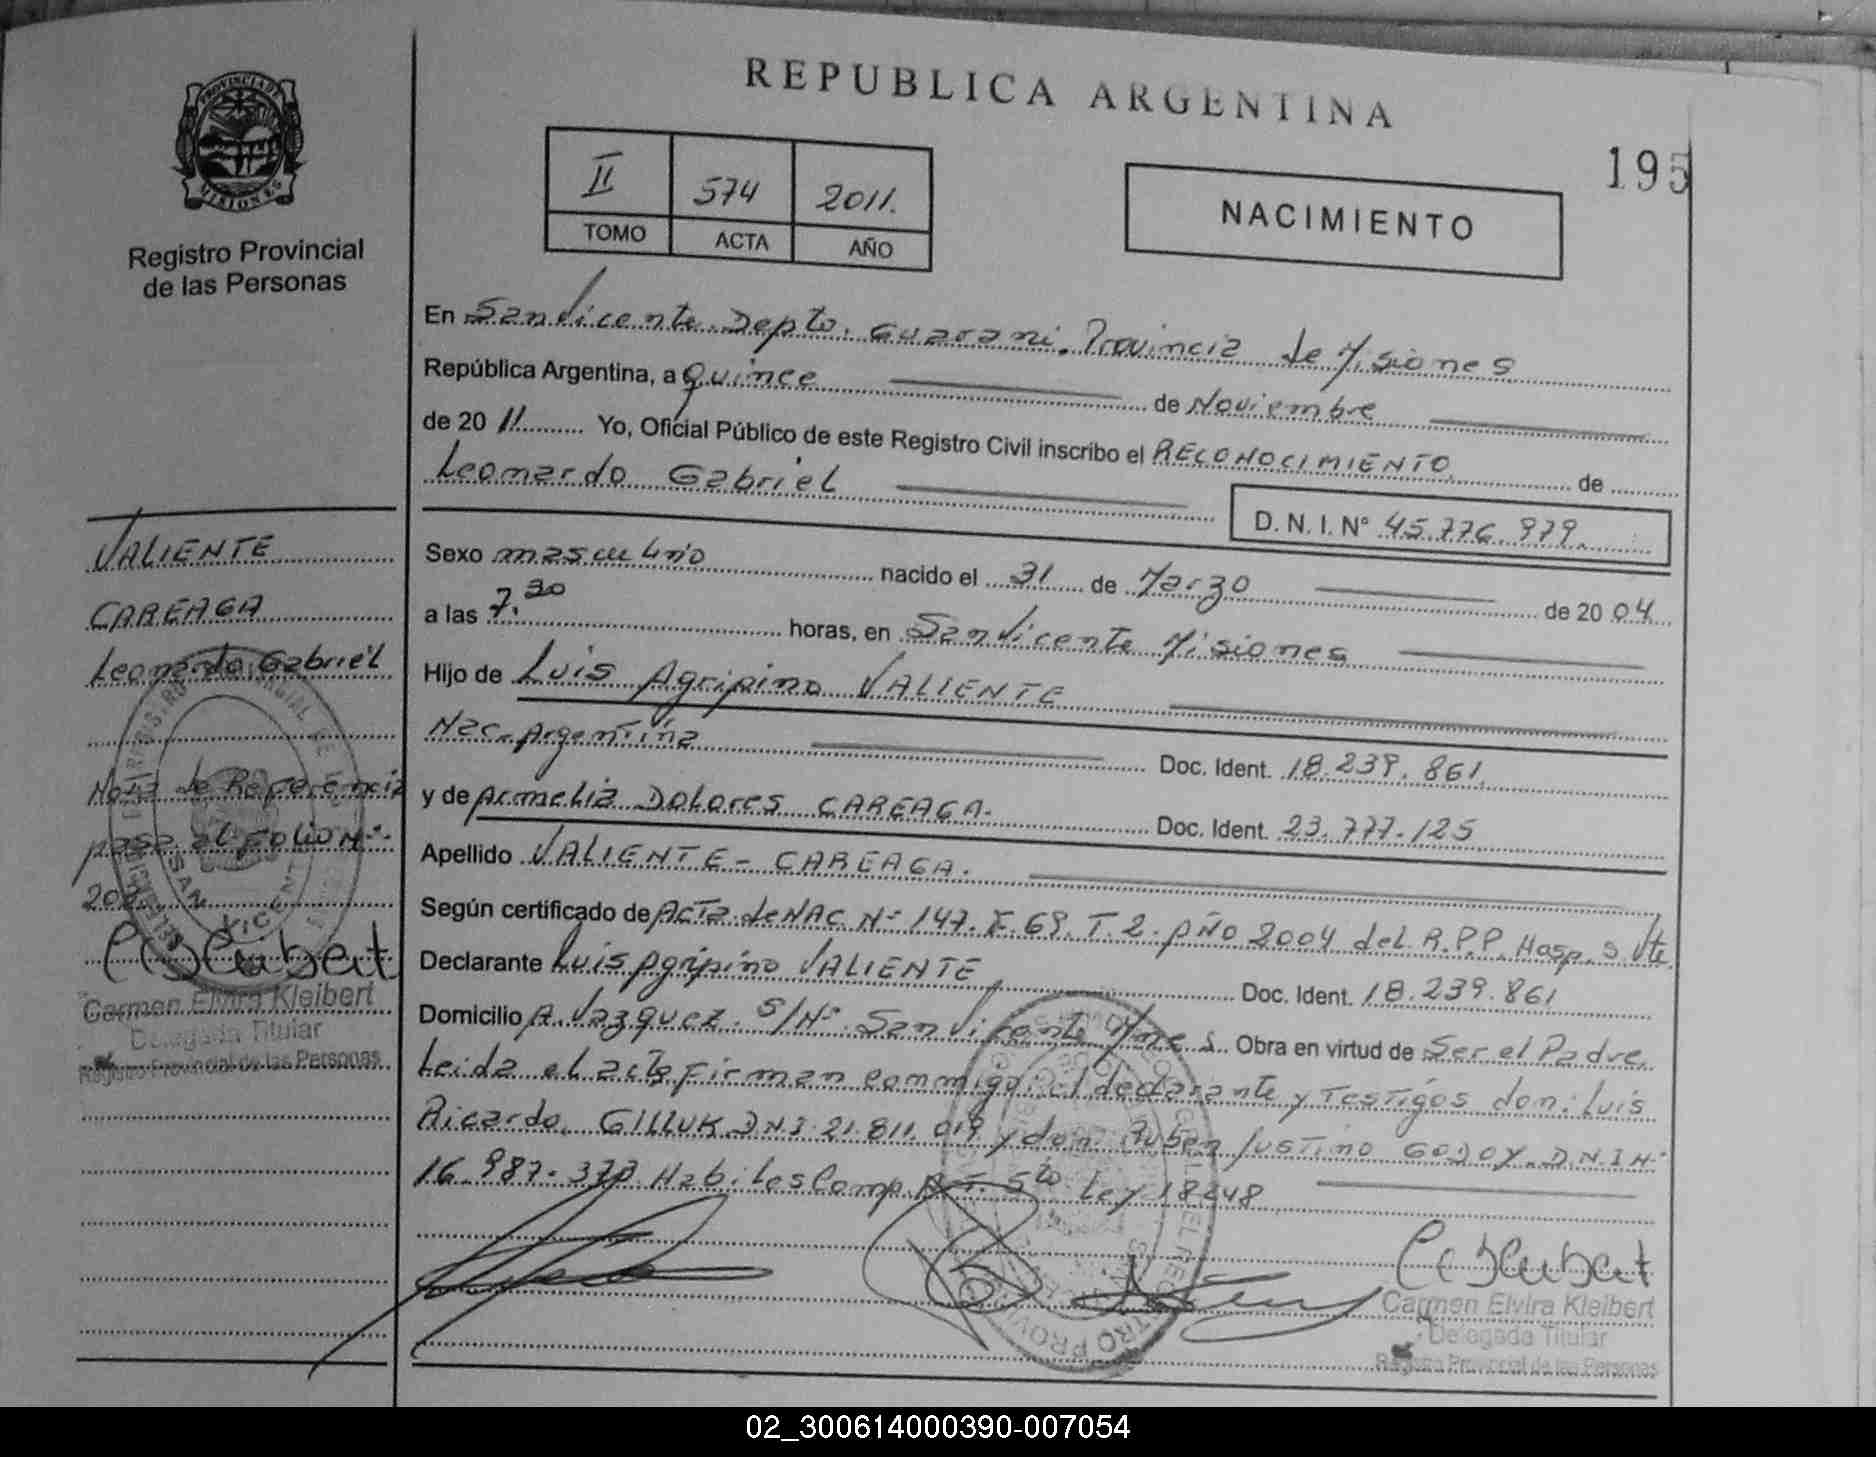 REPUBLICA ARGENTINA
195
PROVINCIA DE
MISIONES
Registro Provincial
de las Personas
II 574 2011.
TOMO ACTA AÑO
NACIMIENTO
En San Vicente. Depto. Guarani. Provincia de Misiones
República Argentina, a quince de Noviembre
de 20 11 Yo, Oficial Público de este Registro Civil inscribo el RECONOCIMIENTO de
Leonardo Gabriel
D. N. I. N° 45.776.979.
Sexo masculino nacido el 31 de Marzo de 20 04
a las 7.30 horas, en San Vicente Misiones
Hijo de Luis Agripino VALIENTE
Nac. Argentina Doc. Ident. 18.239.861.
y de Armelia DOLORES CAREAGA. Doc. Ident. 23.777.125
Apellido VALIENTE - CAREAGA.
Según certificado de Acta de NAC. Nº 147. F. 69. T. 2. AÑO 2004 del R.P.P. Hosp. S. Vte
Declarante Luis Agripino VALIENTE Doc. Ident. 18.239.861
Domicilio A. Vazquez. S/Nº San Vicente Mnes. Obra en virtud de Ser el Padre.
Leida el acta firman conmigo el declarante y Testigos don: Luis
Ricardo. GILLUK D.N.I. 21.811.019 y don Ruben Justino GODOY. D.N.I Nº
16.987.373 Habiles Comp. Art. 5to Ley 18248
Carmen Elvira Kleibert
Delegada Titular
Registro Provincial de las Personas
VALIENTE
CAREAGA
Leonardo Gabriel
Nota de Referencia
pasa al FOLIO Nº
SAN VICENTE
Carmen Elvira Kleibert
Delegada Titular
Registro Provincial de las Personas
02_300614000390-007054